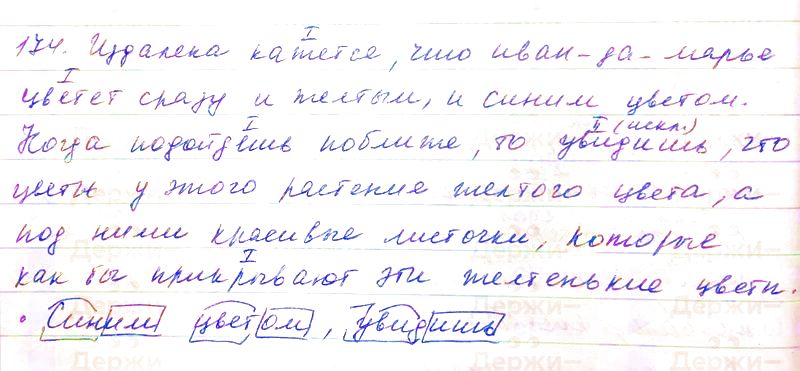 I
174. Издалека кажется, что иван-да-марье
I
цветет сразу и желтым, и синим цветом.
I II (искл.)
Когда подойдешь поближе, то увидишь, что
цветы у этого растение желтого цвета, а
под ними красивые листочки, которые
I
как бы прикрывают эти желтенькие цветы.
• Синим цветом, увидишь